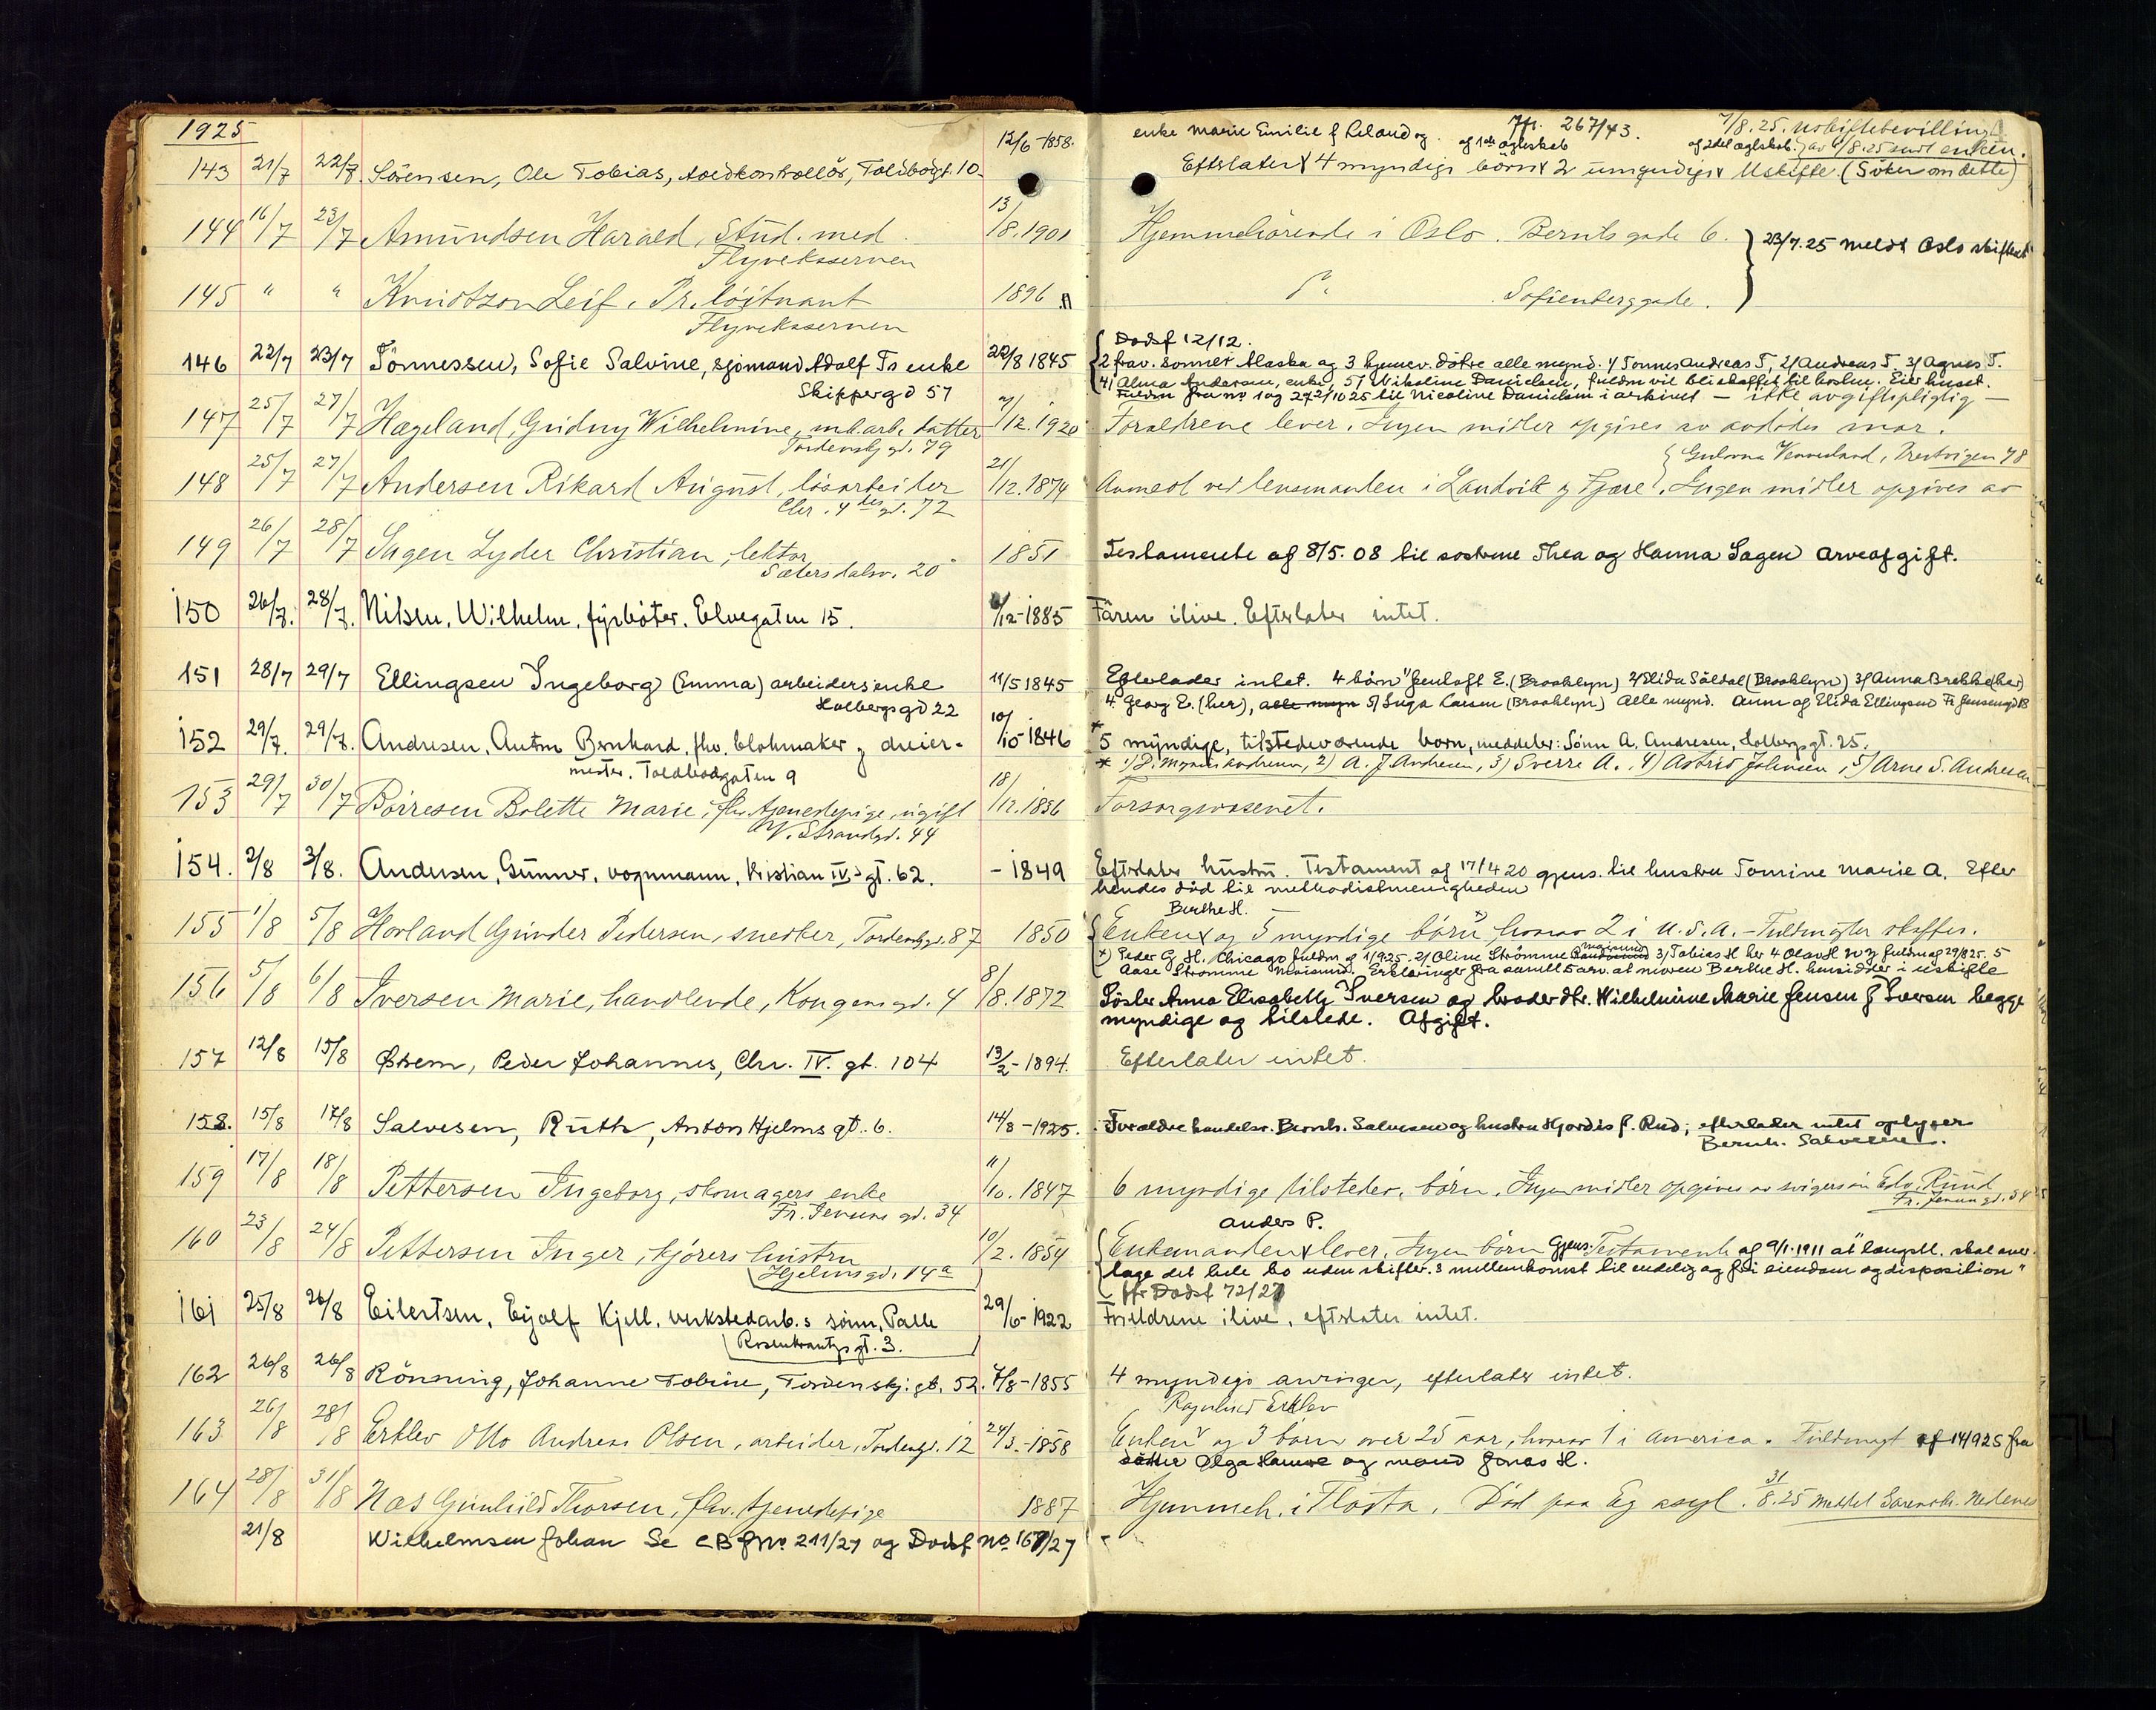 1925
12/6-1858.
enke Marie Emilie f Reland og
af 1ste ægteskab
Jfr. 267/43.
af 2det ægtskab.
7/8.25. Uskiftebevilling
av 6/8.25 sendt enken.
143 21/7 22/7 Sörensen, Ole Tobias, toldkontrollör, Toldbodgt. 10. Efterlater 4 myndige börn 2 umyndige Uskifte (Söker om dette)
144 16/7 23/7 Amundsen Harald, Stud. med 13/8.1901 Hjemmehörende i Oslo. Bernts gade 6. 23/7.25 meldt Oslo skifteret
Flyvekasernen
145 " " Knudtzon Leif. Pr. löitnant 1896 Sofienberggade.
Flyvekasernen
Dødsf 12/12.
146 22/7 23/7 Tönnessen, Sofie Salvine, sjømand Adolf Ts enke 20/8 1845 2 frav. sonner Alaska og 3 hjemev. döttre alle mynd. 1/ Tonnes Andreas T, 2/ Andreas T, 3/ Agnes T.
Skippergd 57 4/ Alma Andersen, enke, 5/ Nikoline Danielsen, fuldm vil bli skaffet til boslm. Eier huset.
Fuldm fra no 1 og 2 72/10 25 til Nicoline Danielsen i arkivet — ikke avgiftspligtig —
147 25/7 27/7 Hægeland, Gudny Wilhelmine, mek.arb. datter 7/12.1920 Forældrene lever. Ingen midler opgives av avdödes mor.
Tordenskj gd. 79 Gulovna Vennesland, Vestvigen 48
148 25/7 27/7 Andersen Rikard August, lösarbeider 21/12.1874 Anmeldt ved lensmanden i Landvik og Fjære. Ingen midler opgives av
Chr. 4des gd. 72
149 26/7 28/7 Sagen Lyder Christian, lektor 1851 Testamente af 8/5.08 til søstrene Thea og Hanna Sagen Arveafgift.
Sætersdalsv. 20
150 26/7. 28/7. Nilsen, Wilhelm, fyrböter, Elvegaten 15. 6/12-1885 Faren ilive. Efterlater intet.
151 28/7 29/7 Ellingsen Ingeborg (Emma) arbeidersenke 11/5 1845 Efterlader intet. 4 börn 1/ Gerloft E. (Brooklyn) 2/ Elida Söldal (Brooklyn) 3/ Anna Brekke (her)
Holbergsgd 22 4 Georg E. (her), alle myn 5/ Inga Larsen (Brooklyn) Alle mynd. Anm af Elida Ellingsen Fr Jensensgd 18
152 29/7. 29/7. Andresen, Anton Bernhard, fhv. blokmaker og dreier- 10/10-1846 5 myndige, tilstedeværende barn, meddeler: Sönn A. Andresen, Holbergsgt. 25.
mester. Toldbodgaten 9 * 1) D. Magnus Andresen, 2) A. J. Andresen, 3) Sverre A., 4) Astrid Johnsen, 5) Arne S. Andresen
153 29/7 30/7 Börresen Bolette Marie, fhv. tjenestepige, ugift 18/12.1856 Forsorgsvæsenet.
V. Strandgd. 44
154. 2/8 3/8. Andersen, Gunner, vognmann, Kristian IV.s gt. 62. -1849 Efterlater hustru. Testament af 17/4 20 gjens. til hustru Tomine Marie A. Efter
hendes död til methodistmenigheden
Berthe H.
155 1/8 5/8 Hovland Gunder Pedersen, snedker, Tordenskj gd. 87 1850 Enken og 5 myndige börn, hvorav 2 i U.S.A. - Fuldmagter skaffes.
*) Peder G. H. Chicago fuldm af 1/925. 2/ Oline Strömme Mosjøen 3/ Tobias H her 4 Olav H N Y fuldm af 29/825. 5
Aase Strømme Moisund. Erklæringer fra samtl 5 arv. at moren Berthe H. hensidder i uskifte
156 5/8 6/8 Iversen Marie, handlende, Kongensgd. 4 8/8.1872 Söster Anna Elisabeth Iversen og broder dtr. Wilhelmine Marie Jensen f Iversen begge
myndige og tilstede. Afgift.
157 12/8 15/8 Østrem, Peder Johannes, Chr. IV. gt. 104 13/2-1894. Efterlater intet.
158. 15/8 17/8 Salvesen, Ruth, Anton Hjelms gt. 6. 14/8-1925. Forældre handelsr. Bernh. Salvesen og hustru Hjördis f. Rud; efterlater intet oplyser
Bernh. Salvesen.
159 17/8 18/8 Pettersen Ingeborg, skomagers enke 11/10.1847 6 myndige tilstedev. börn. Ingen midler opgives av svigersön Edv. Ruud
Fr. Jensens gd. 34 Fr. Jensen gd. 34
Anders P.
160 23/8 24/8 Pettersen Inger, kjörers hustru 10/2.1854 Enkemanden lever. Ingen börn Gjens. Testament af 9/1.1911 at "længstl. skal over-
Hjelmsgd. 14a tage det hele bo uden skifte. s mellemkomst til endelig og fri eiendom og disposition"
jfr Dødsf 72/27
161 25/8 26/8 Eilertsen, Eyolf Kjell, verkstedarb.s sönn, Palle 29/6-1922 Foreldrene ilive, efterlater intet.
Rosenkrantzsgt. 3.
162 26/8 26/8 Rönning, Johanne Tobine, Tordenskj. gt. 52. 7/8-1855 4 myndige arvinger, efterlater intet.
Ragnhild Ertzlev
163 26/8 28/8 Ertzlev Otto Andreas Olsen, arbeider, Tordenskj gd. 12 24/3.-1858 Enken og 3 barn over 25 aar, hvorav 1 i America. Fuldmagt af 14/925 fra
datter Olga Hamre og mand Jonas H.
164 28/8 31/8 Næs Gunhild Thorsen, fhv. tjenestepige 1887 Hjemmeh. i Flosta. Död paa Eg asyl. 31/8.25 Meddel Sorenskr. Nedenes
21/8 Wilhelmsen Johan Se CBf No 211/27 og Dødsf No 167/27